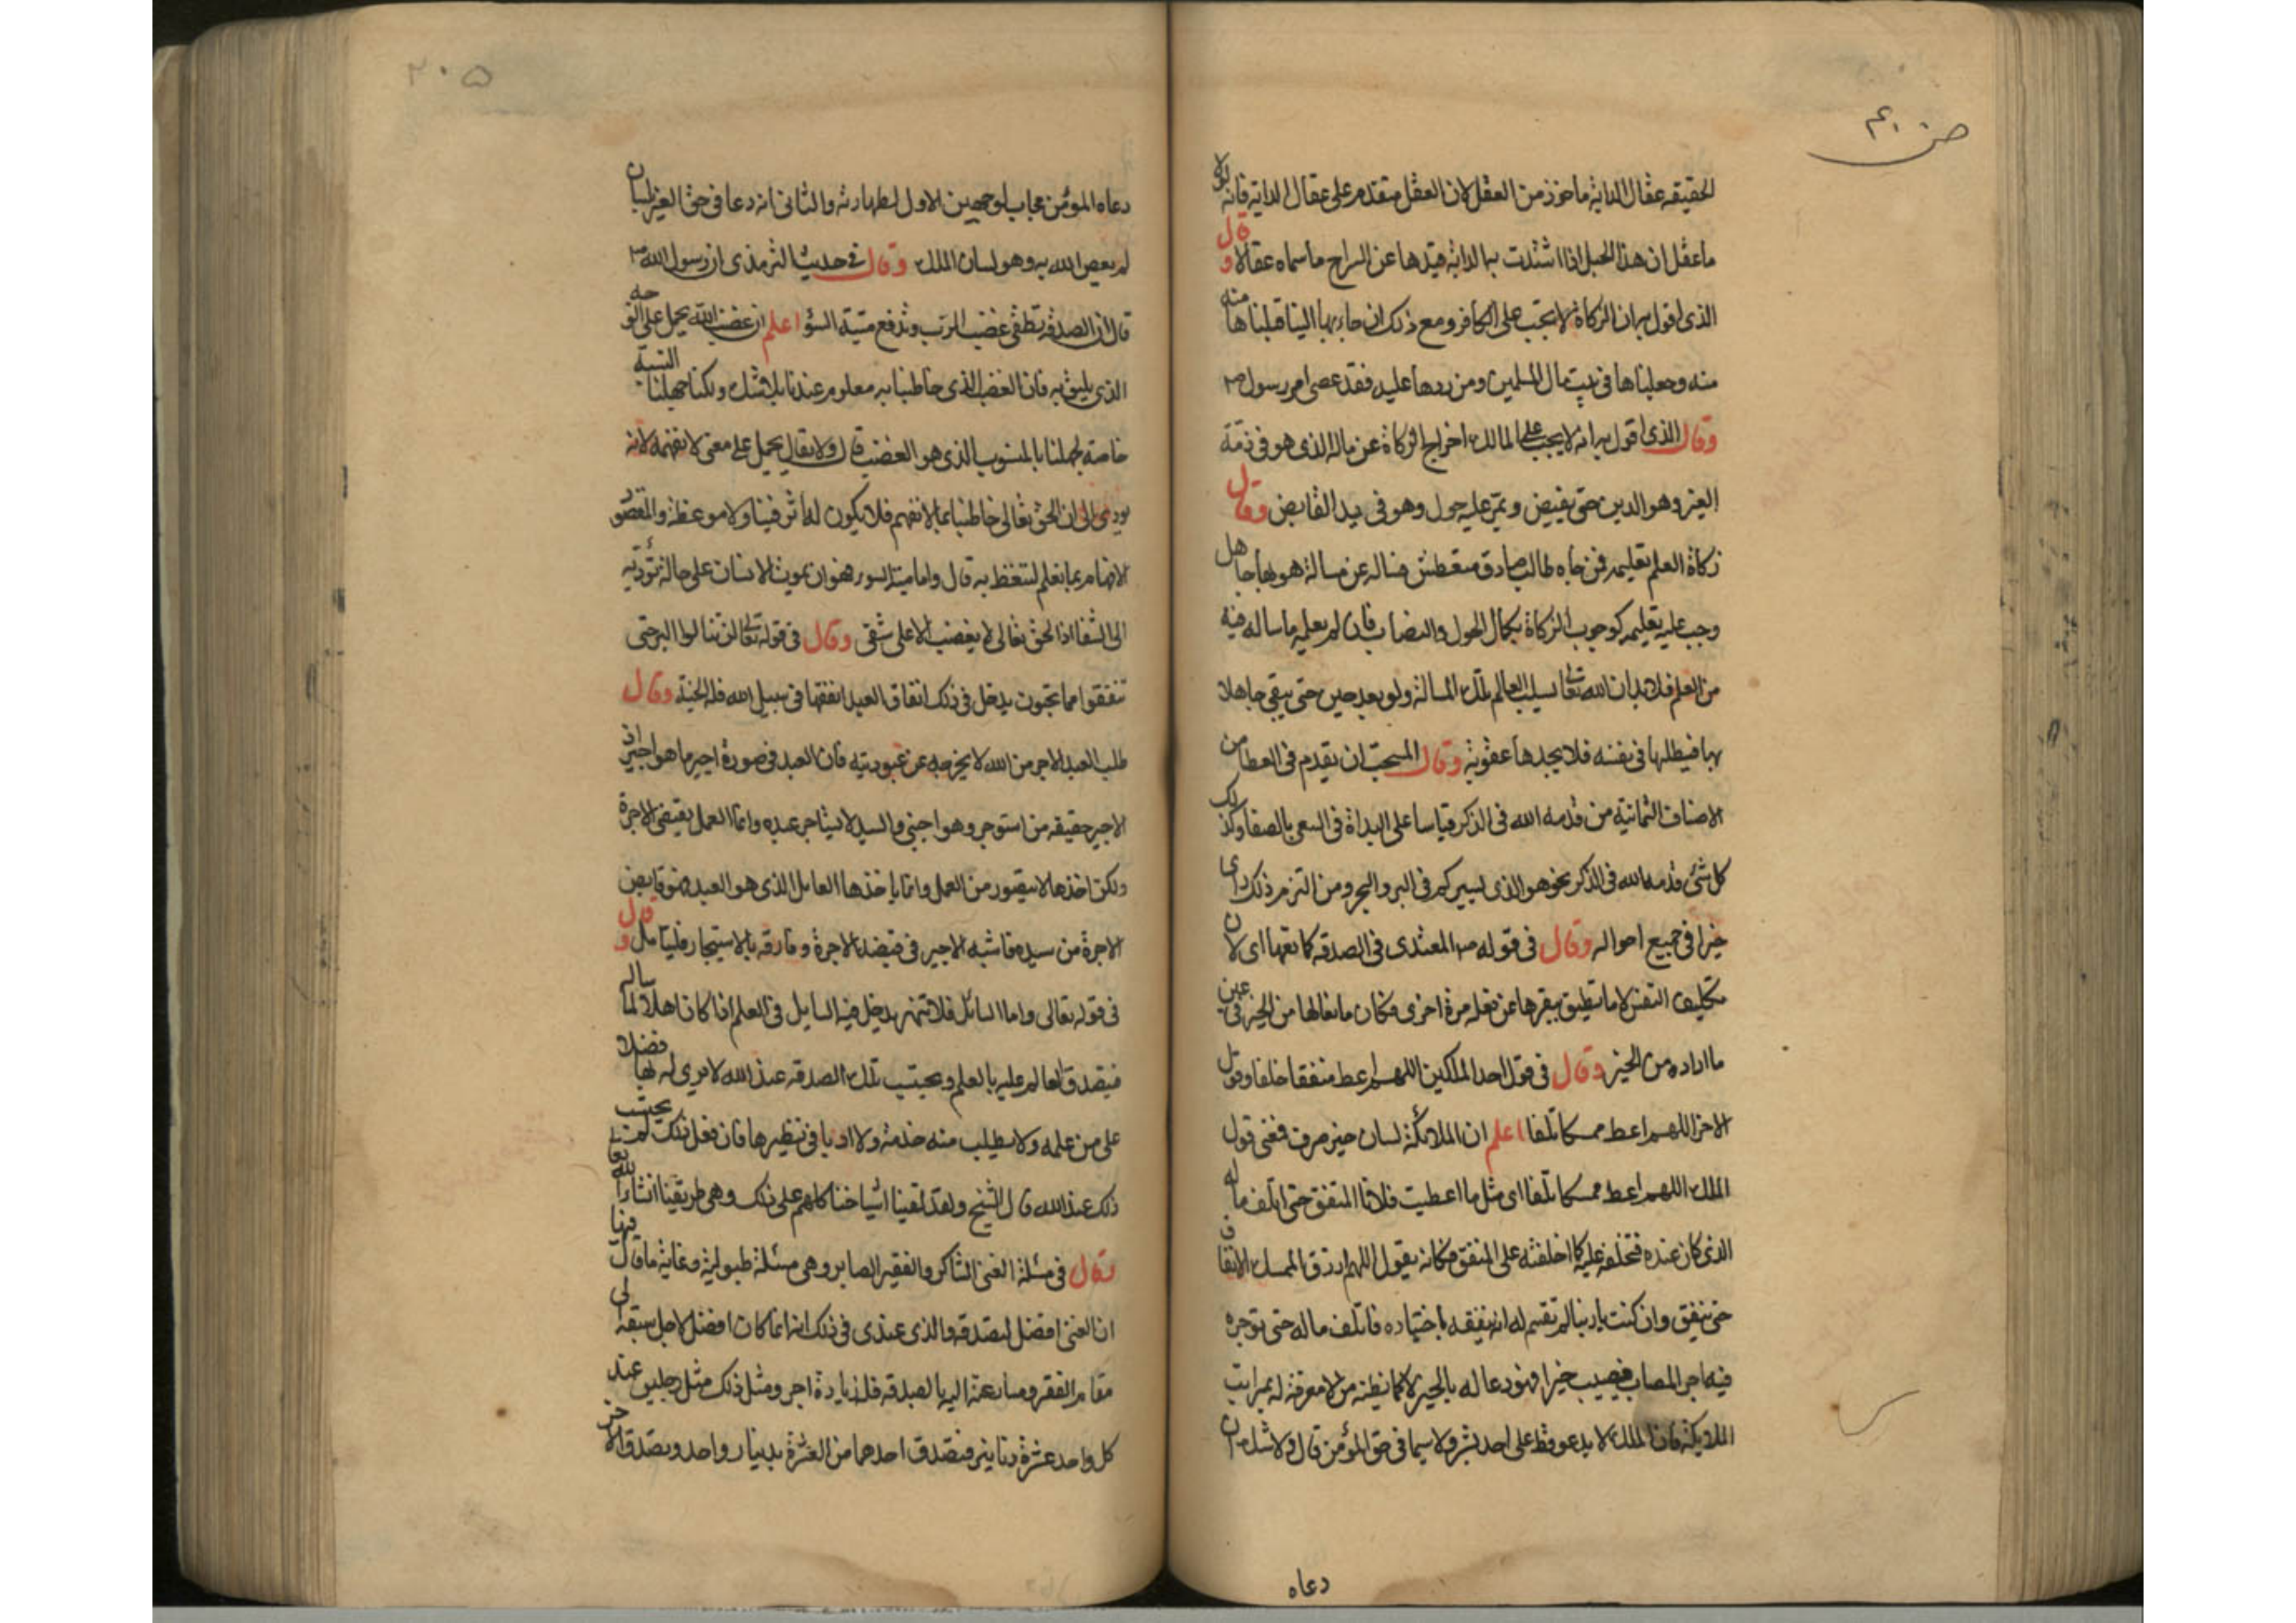 صن ٤٠
الحقيقه عقال الدابة ماخوذ من العقل لان العقل متقدم على عقال الدابة فانه لولا
ما عقل ان هذا الحبل اذا اشتدت به الدابة قيدها عن السراح ما سماه عقالا وقال
الذى اقول به ان الزكاة لا يجب على الكافر ومع ذلك ان جاء بها الينا قبلناها منه
منه وجعلناها فى بيت مال المسلمين ومن ردها عليه فقد عصى امر رسول
وقال الذى اقول به انه لا يجب على المالك اخراج الزكاة عن ماله الذى هو فى ذمة
الغير وهو الدين حتى يقبض ويمر عليه حول وهو فى يد القابض وقال
زكاة العلم تعليمه فمن جاه طالب صادق متعطش فساله عن مسالة هو بها جاهل
وجب عليه تعليمه كوجوب الزكاة بكمال الحول والنصاب فان لم يعلمه ما ساله فيه
من العلم فلا بد ان الله تعالى يسلب العالم تلك المسالة ولو بعد حين حتى يبقى جاهلا
بها فيطلبها فى نفسه فلا يجدها عقوبة وقال المستحب ان يقدم فى العطا من
الاصناف الثمانية من قدمه الله فى الذكر قياسا على البداة فى السعى بالصفا وكذلك
كل شئ قدمه الله فى الذكر نحو هو الذى يسيركم فى البر والبحر ومن التزم ذلك راى
خيرا فى جميع احواله وقال فى قوله المعتدى فى الصدقه كمانعها اى لان
تكليف النفس لا ما تطيق ينفرها عن فعله مرة اخرى فكان مانعا لها من الخير فى عين
ما اراده من الخير وقال فى قول احد الملكين اللهم اعط منفقا خلفا وقول
الاخر اللهم اعط ممسكا تلفا اعلم ان الملائكة لسان خير صرف فمعنى قول
الملك اللهم اعط ممسكا تلفا اى مثل ما اعطيت فلانا المنفق حتى اتلف ماله
الذى كان عنده فتخلفه عليه كما اخلفته على المنفق فكانه يقول اللهم ارزق الممسك الانفاق
حتى ينفق وان كنت يا ربنا لم تقسم له انه ينفقه باختياره فاتلف ماله حتى توجره
فيه اجر المصاب فيصيب خيرا فهو دعا له بالخير لا كما يظنه من لا معرفة له بمراتب
الملايكة فان الملك لا يدعو قط على احد بشر ولا سيما فى حق المؤمن قال ولا شك ان
دعاه
٢٠٥
دعاه المؤمن مجاب لوجهين الاول لطهارته والثانى انه دعا فى حق الغير بلسان
لم يعص الله به وهو لسان الملك وقال فى حديث الترمذى ان رسول الله
قال ان الصدقة تطفى غضب الرب وتدفع ميتة السؤ اعلم ان غضب الله يحمل على الوجه
الذى يليق به فان الغضب الذى خاطبنا به معلوم عندنا بلا شك ولكنا جهلنا النسبة
خاصة لجهلنا بالمنسوب الذى هو الغضب قال ولا يقال يحمل على معنى لا نفهمه لانه
يودى الى ان الحق تعالى خاطبنا بما لا نفهم فلا يكون له اثر فينا ولا موعظة والمقصود
الافهام بما نعلم لنتعظ به قال واما ميتة السور فهو ان يموت الانسان على حالة تؤديه
الى الشقا اذ الحق تعالى لا يغضب الا على شقى وقال فى قوله تعالى لن تنالوا البر حتى
تنفقوا مما تحبون يدخل فى ذلك انفاق العبد انفقها فى سبيل الله فله الجنة وقال
طلب العبد الاجر من الله لا يخرجه عن عبوديته فان العبد فى صورة اجير ما هو اجير اذ
الاجير حقيقه من استوجر وهو اجنبى والسيد لا يستاجر عبده وانما العمل يقتضى الاجرة
ولكن اخذها لا يتصور من العمل وانما ياخذها العامل الذى هو العبد فهو قابض
الاجرة من سيده فاشبه الاجير فى قبضه الاجرة وفارقه بالاستيجار فليتامل وقال
فى قوله تعالى واما السائل فلا تنهر يدخل فيه السايل فى العلم اذا كان اهلا لما ساله
فيتصدق العالم عليه بالعلم ويحتسب تلك الصدقه عند الله لا يرى له بها فضلا
على من علمه ولا يطلب منه خدمة ولا ادبا فى نظيرها فان فعل ذلك لم يحتسب
ذلك عند الله قال الشيخ ولقد لقينا اشياخنا كلهم على ذلك وهى طريقنا ان شا الله تعا
وقال فى مسئلة الغنى الشاكر والفقير الصابر وهى مسئلة طبولية وغاية ما قال فيها
ان الغنى افضل لتصدقه والذى عندى فى ذلك انه انما كان افضل لاجل سبقه الى
مقام الفقر ومسارعته اليه بالصدقه فله زيادة اجر ومثل ذلك مثل رجلين عند
كل واحد عشرة دنانير فتصدق احدهما من العشرة بدينار واحد وتصدق الاخر